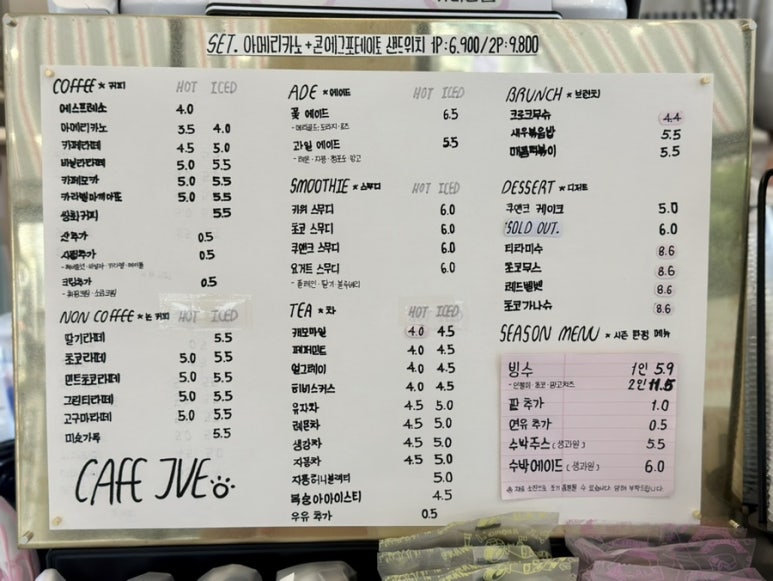 SET. 아메리카노 + 콘에그포테이토 샌드위치 1P: 6.900 / 2P: 9.800
COFFEE * 커피 HOT ICED
에스프레소 4.0
아메리카노 3.5 4.0
카페라떼 4.5 5.0
바닐라라떼 5.0 5.5
카페모카 5.0 5.5
카라멜마끼아또 5.0 5.5
쌍화커피 5.5
샷추가 0.5
시럽추가 0.5
크림추가 0.5
NON COFFEE * 논 커피 HOT ICED
딸기라떼 5.5
초코라떼 5.0 5.5
민트초코라떼 5.0 5.5
그린티라떼 5.0 5.5
고구마라떼 5.0 5.5
미숫가루 5.5
CAFE JVE
ADE * 에이드 HOT ICED
꽃 에이드 6.5
과일 에이드 5.5
- 레몬 · 자몽 · 청포도 · 망고
SMOOTHIE * 스무디 HOT ICED
키위 스무디 6.0
초코 스무디 6.0
쿠앤크 스무디 6.0
요거트 스무디 6.0
- 플레인 · 딸기 · 블루베리
TEA * 차 HOT ICED
캐모마일 4.0 4.5
페퍼민트 4.0 4.5
얼그레이 4.0 4.5
히비스커스 4.0 4.5
유자차 4.5 5.0
레몬차 4.5 5.0
생강차 4.5 5.0
자몽차 4.5 5.0
자몽허니블랙티 5.0
복숭아아이스티 4.5
우유 추가 0.5
BRUNCH * 브런치
크로크무슈 4.4
새우볶음밥 5.5
매콤떡볶이 5.5
DESSERT * 디저트
쿠앤크 케이크 5.0
SOLD OUT. 6.0
티라미수 8.6
초코무스 8.6
레드벨벳 8.6
초코가나슈 8.6
SEASON MENU * 시즌 한정 메뉴
빙수 1인 5.9
- 인절미 · 초코 · 망고치즈 2인 11.5
팥 추가 1.0
연유 추가 0.5
수박주스 (생과일) 5.5
수박에이드 (생과일) 6.0